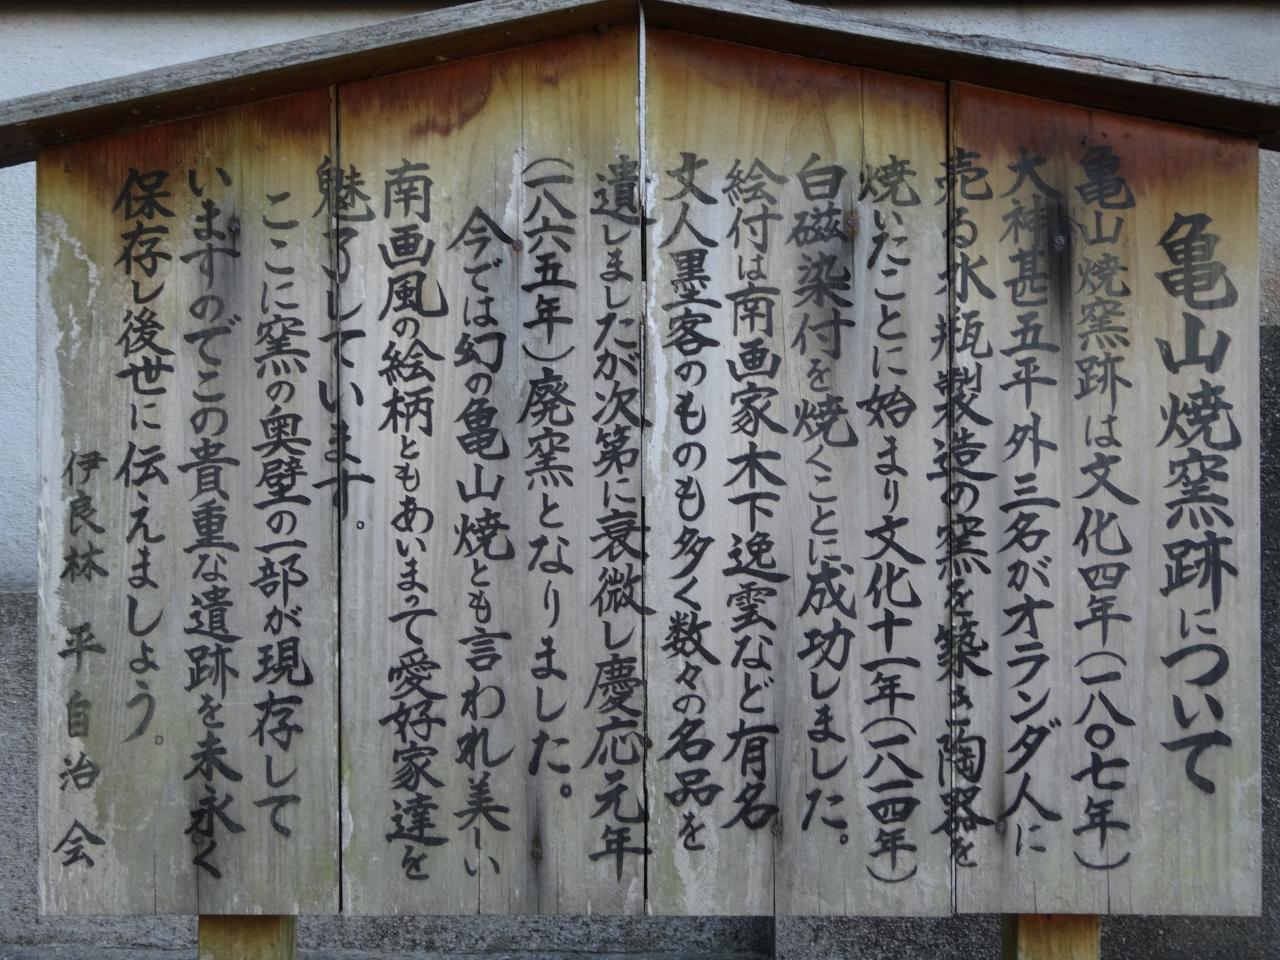 亀山焼窯跡について
亀山焼窯跡は文化四年(一八〇七年)
大神甚五平外三名がオランダ人に
売る水瓶製造の窯を築き陶器を
焼いたことに始まり文化十一年(一八一四年)
白磁染付を焼くことに成功しました。
絵付は南画家木下逸雲など有名
文人墨客のものも多く数々の名品を
遺しましたが次第に衰微し慶応元年
(一八六五年)廃窯となりました。
今では幻の亀山焼とも言われ美しい
南画風の絵柄ともあいまって愛好家達を
魅了しています。
ここに窯の奥壁の一部が現存して
いますのでこの貴重な遺跡を末永く
保存し後世に伝えましょう。
伊良林平自治会